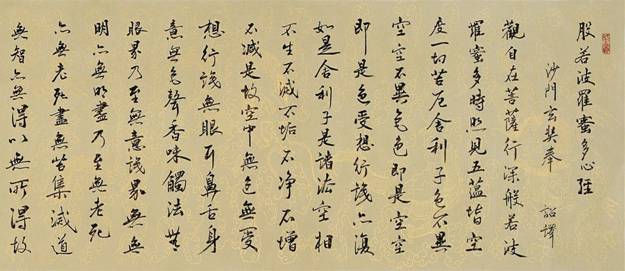 般若波羅蜜多心經
沙門玄奘奉 詔譯
觀自在菩薩行深般若波
羅蜜多時照見五蘊皆空
度一切苦厄舍利子色不異
空空不異色色即是空空
即是色受想行識亦復
如是舍利子是諸法空相
不生不滅不垢不净不增
不減是故空中無色無受
想行識無眼耳鼻舌身
意無色聲香味觸法無
眼界乃至無意識界無無
明亦無明盡乃至無老死
亦無老死盡無苦集滅道
無智亦無得以無所得故